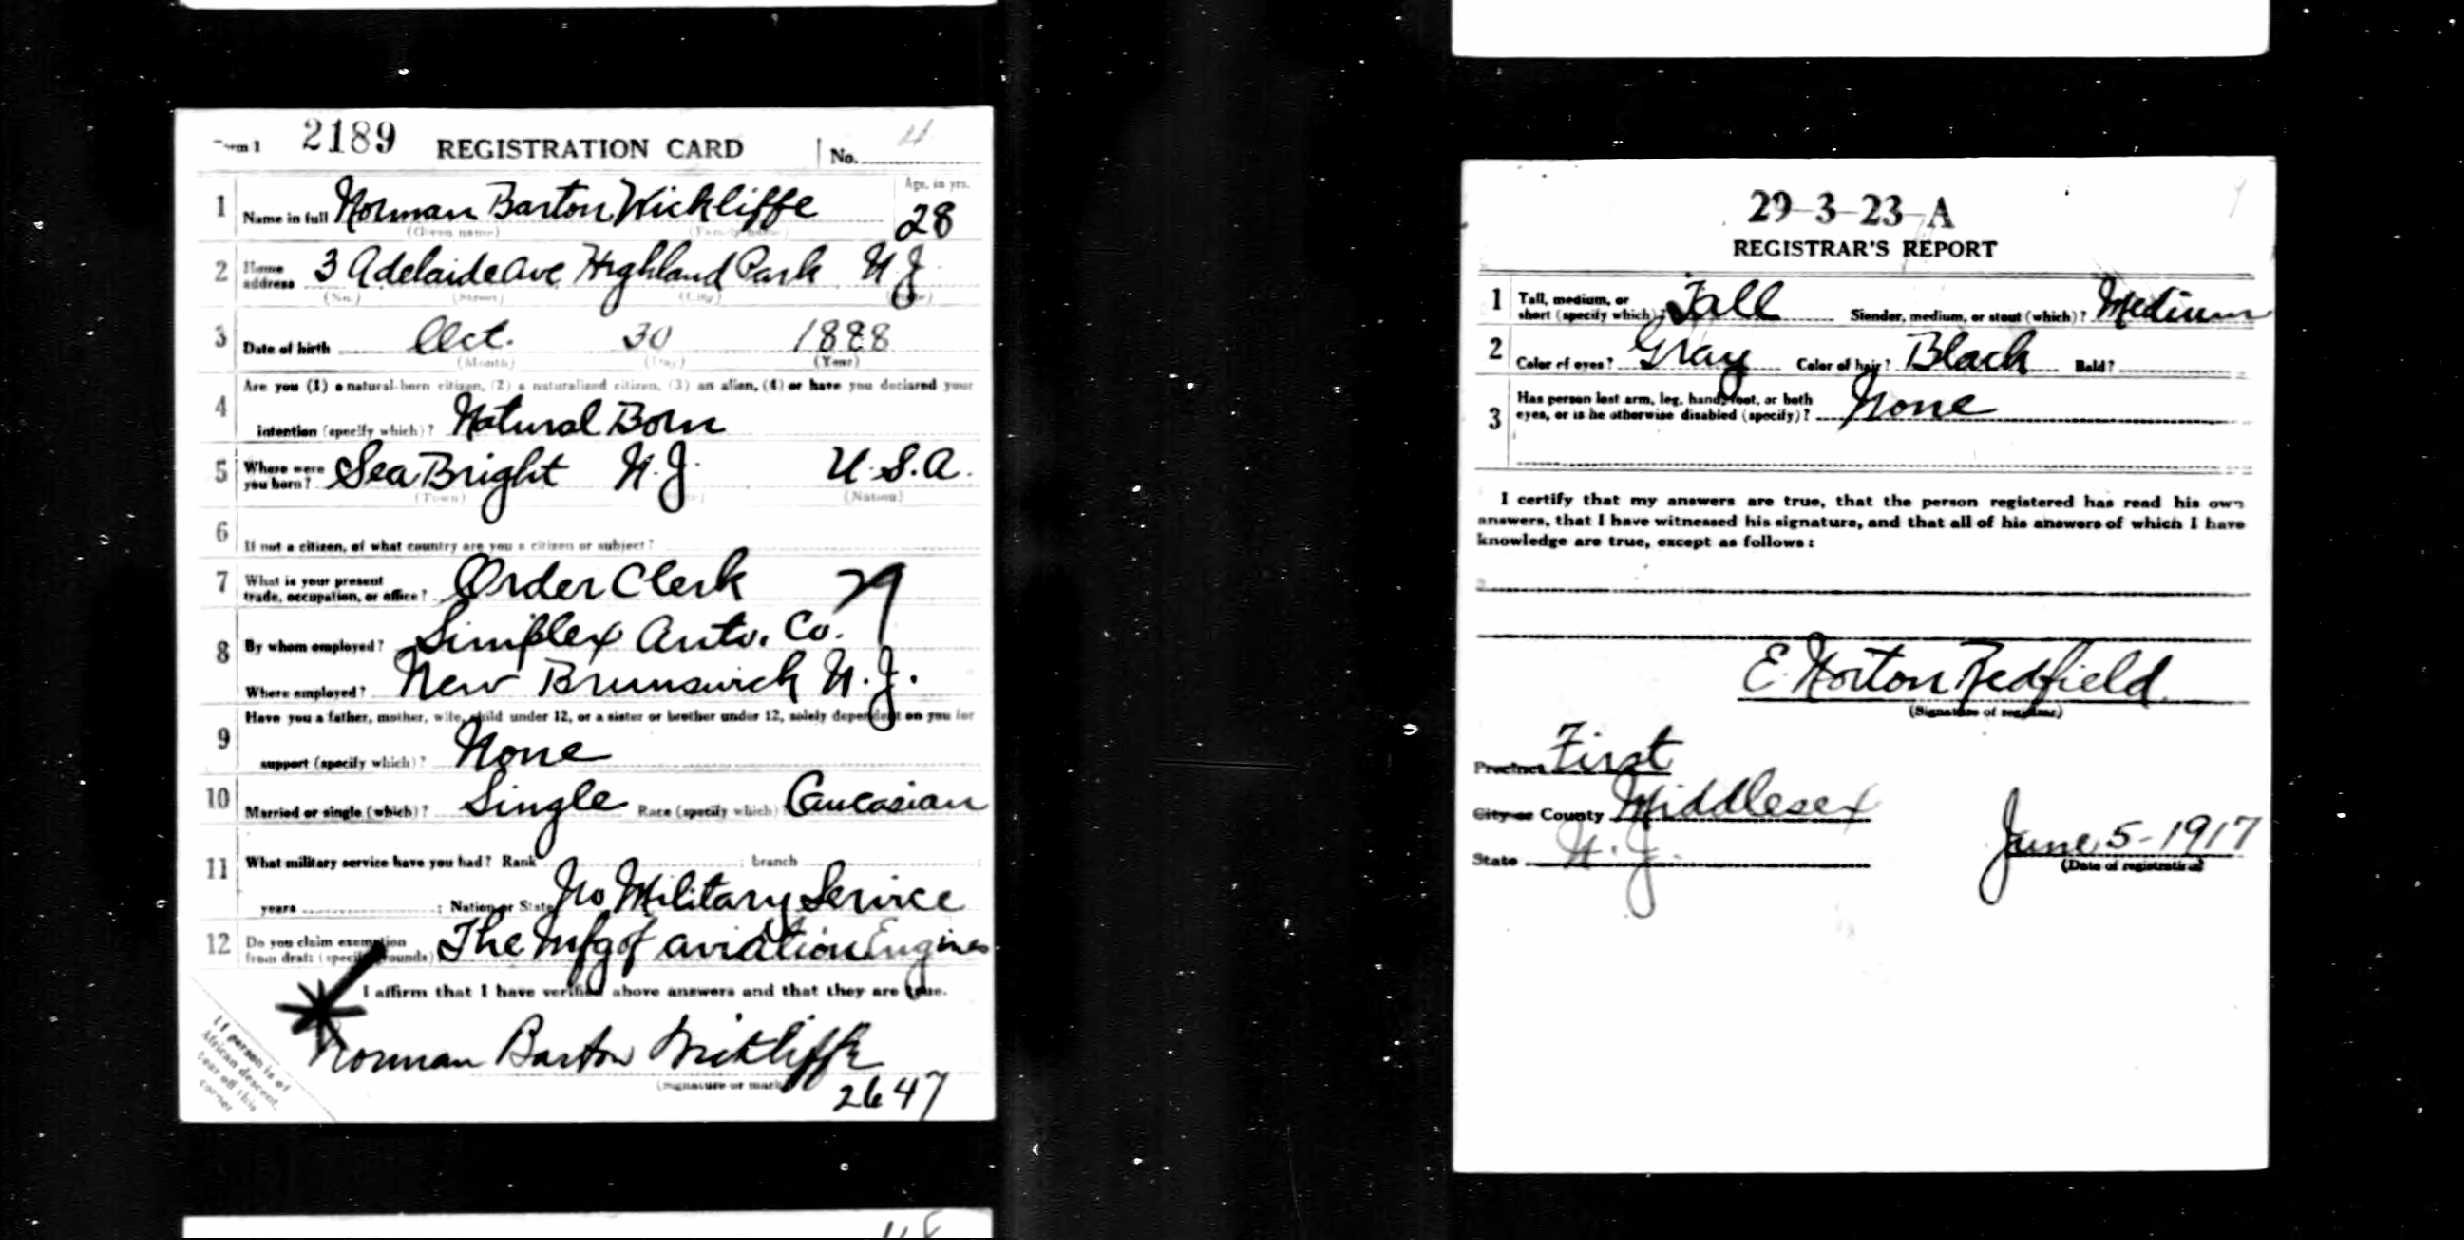 Form 1 2189 REGISTRATION CARD No. 4
1 Name in full Norman Barton Wickliffe Age, in yrs. 28
(Given name) (Family name)
2 Home address 3 Adelaide Ave Highland Park N.J.
(No.) (Street) (City) (State)
3 Date of birth Oct. 30 1888
(Month) (Day) (Year)
4 Are you (1) a natural-born citizen, (2) a naturalized citizen, (3) an alien, (4) or have you declared your
intention (specify which)? Natural Born
5 Where were you born? Sea Bright N.J. U.S.A.
(Town) (Nation)
6 If not a citizen, of what country are you a citizen or subject?
7 What is your present trade, occupation, or office? Order Clerk
8 By whom employed? Simplex Auto. Co.
Where employed? New Brunswick N.J.
9 Have you a father, mother, wife, child under 12, or a sister or brother under 12, solely dependent on you for
support (specify which)? None
10 Married or single (which)? Single Race (specify which) Caucasian
11 What military service have you had? Rank ; branch
years ; Nation or State No Military Service
12 Do you claim exemption from draft (specify grounds) The Mfg of aviation Engines
I affirm that I have verified above answers and that they are true.
Norman Barton Wickliffe
(Signature or mark)
2647
If person is of
African descent,
tear off this
corner
29-3-23-A
REGISTRAR'S REPORT
1 Tall, medium, or short (specify which)? Tall Slender, medium, or stout (which)? Medium
2 Color of eyes? Gray Color of hair? Black Bald?
3 Has person lost arm, leg, hand, foot, or both
eyes, or is he otherwise disabled (specify)? None
I certify that my answers are true, that the person registered has read his own
answers, that I have witnessed his signature, and that all of his answers of which I have
knowledge are true, except as follows:
E. Norton Redfield
(Signature of registrar)
Precinct First
City or County Middlesex
State N.J.
June 5-1917
(Date of registration)